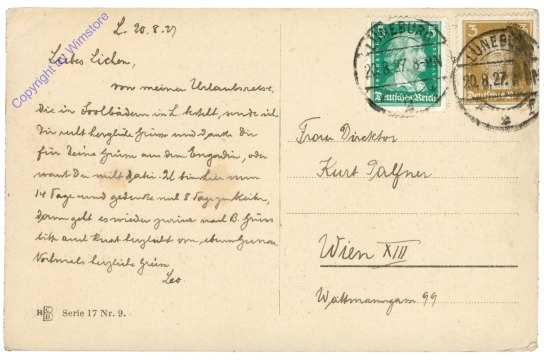 L. 20.8.27
Liebes Lieben,
von meiner Urlaubsreise,
die in Soolbädern in L. besteht, sende ich
Dir recht herzliche Grüsse und danke Dir
für Deine Grüsse aus dem Engadin, oder
warst Du nicht dabei. Ich bin hier nun
14 Tage und gedenke noch 8 Tage
dann geht es wieder zurück nach B. Grüss
bitte auch Kurt herzlich von
Nochmals herzliche Grüsse
Leo
HB Serie 17 Nr. 9.
LÜNEBURG
20.8.27. 8-9N
Deutsches Reich
3
LÜNEBURG
20.8.27.
Frau Direktor
Kurt Palfner
Wien XIII
Wattmanngasse 99
Copyright by Wimstore